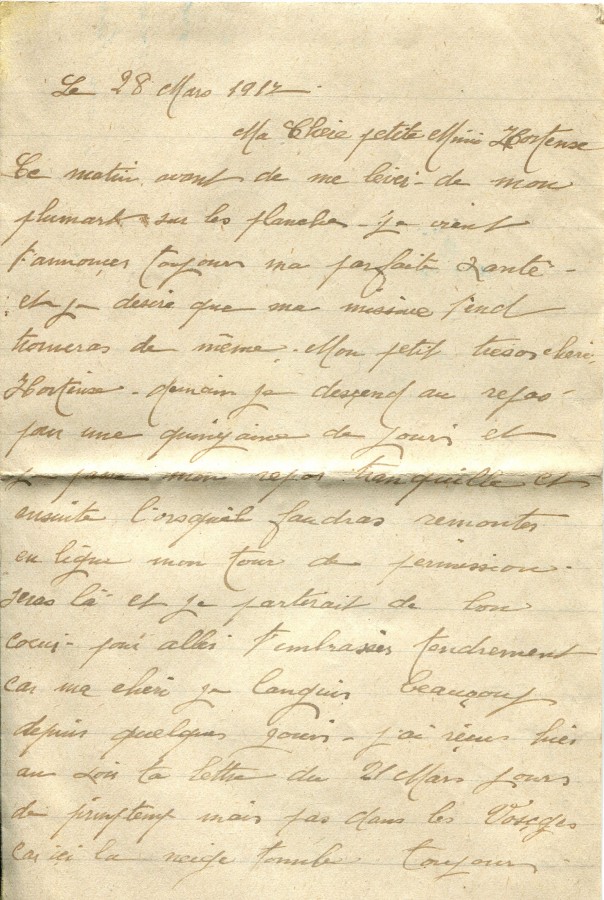 Le 28 Mars 1917
Ma Cherie petite Mimi Hortense
Ce matin avant de me lever de mon
plumart sur les planches je vient
t'annonçer toujour ma parfaite santé
et je desire que ma missive t'end
trouveras de même. Mon petit tresor cheri
Hortense demain je desçend au repos
pour une quinzaine de jours et
je mon repos tranquille et
ensuite lorsquil faudras remonter
en ligne mon tour de permission
seras là et je partirait de bon
coeur pour aller t'embrasser tendrement
car ma cheri je languis beauçoup
depuis quelques jours j'ai reçus hier
au soir ta lettre du 21 Mars jours
de printemp mais pas dans les Vosges
car ici la neige tombe toujour